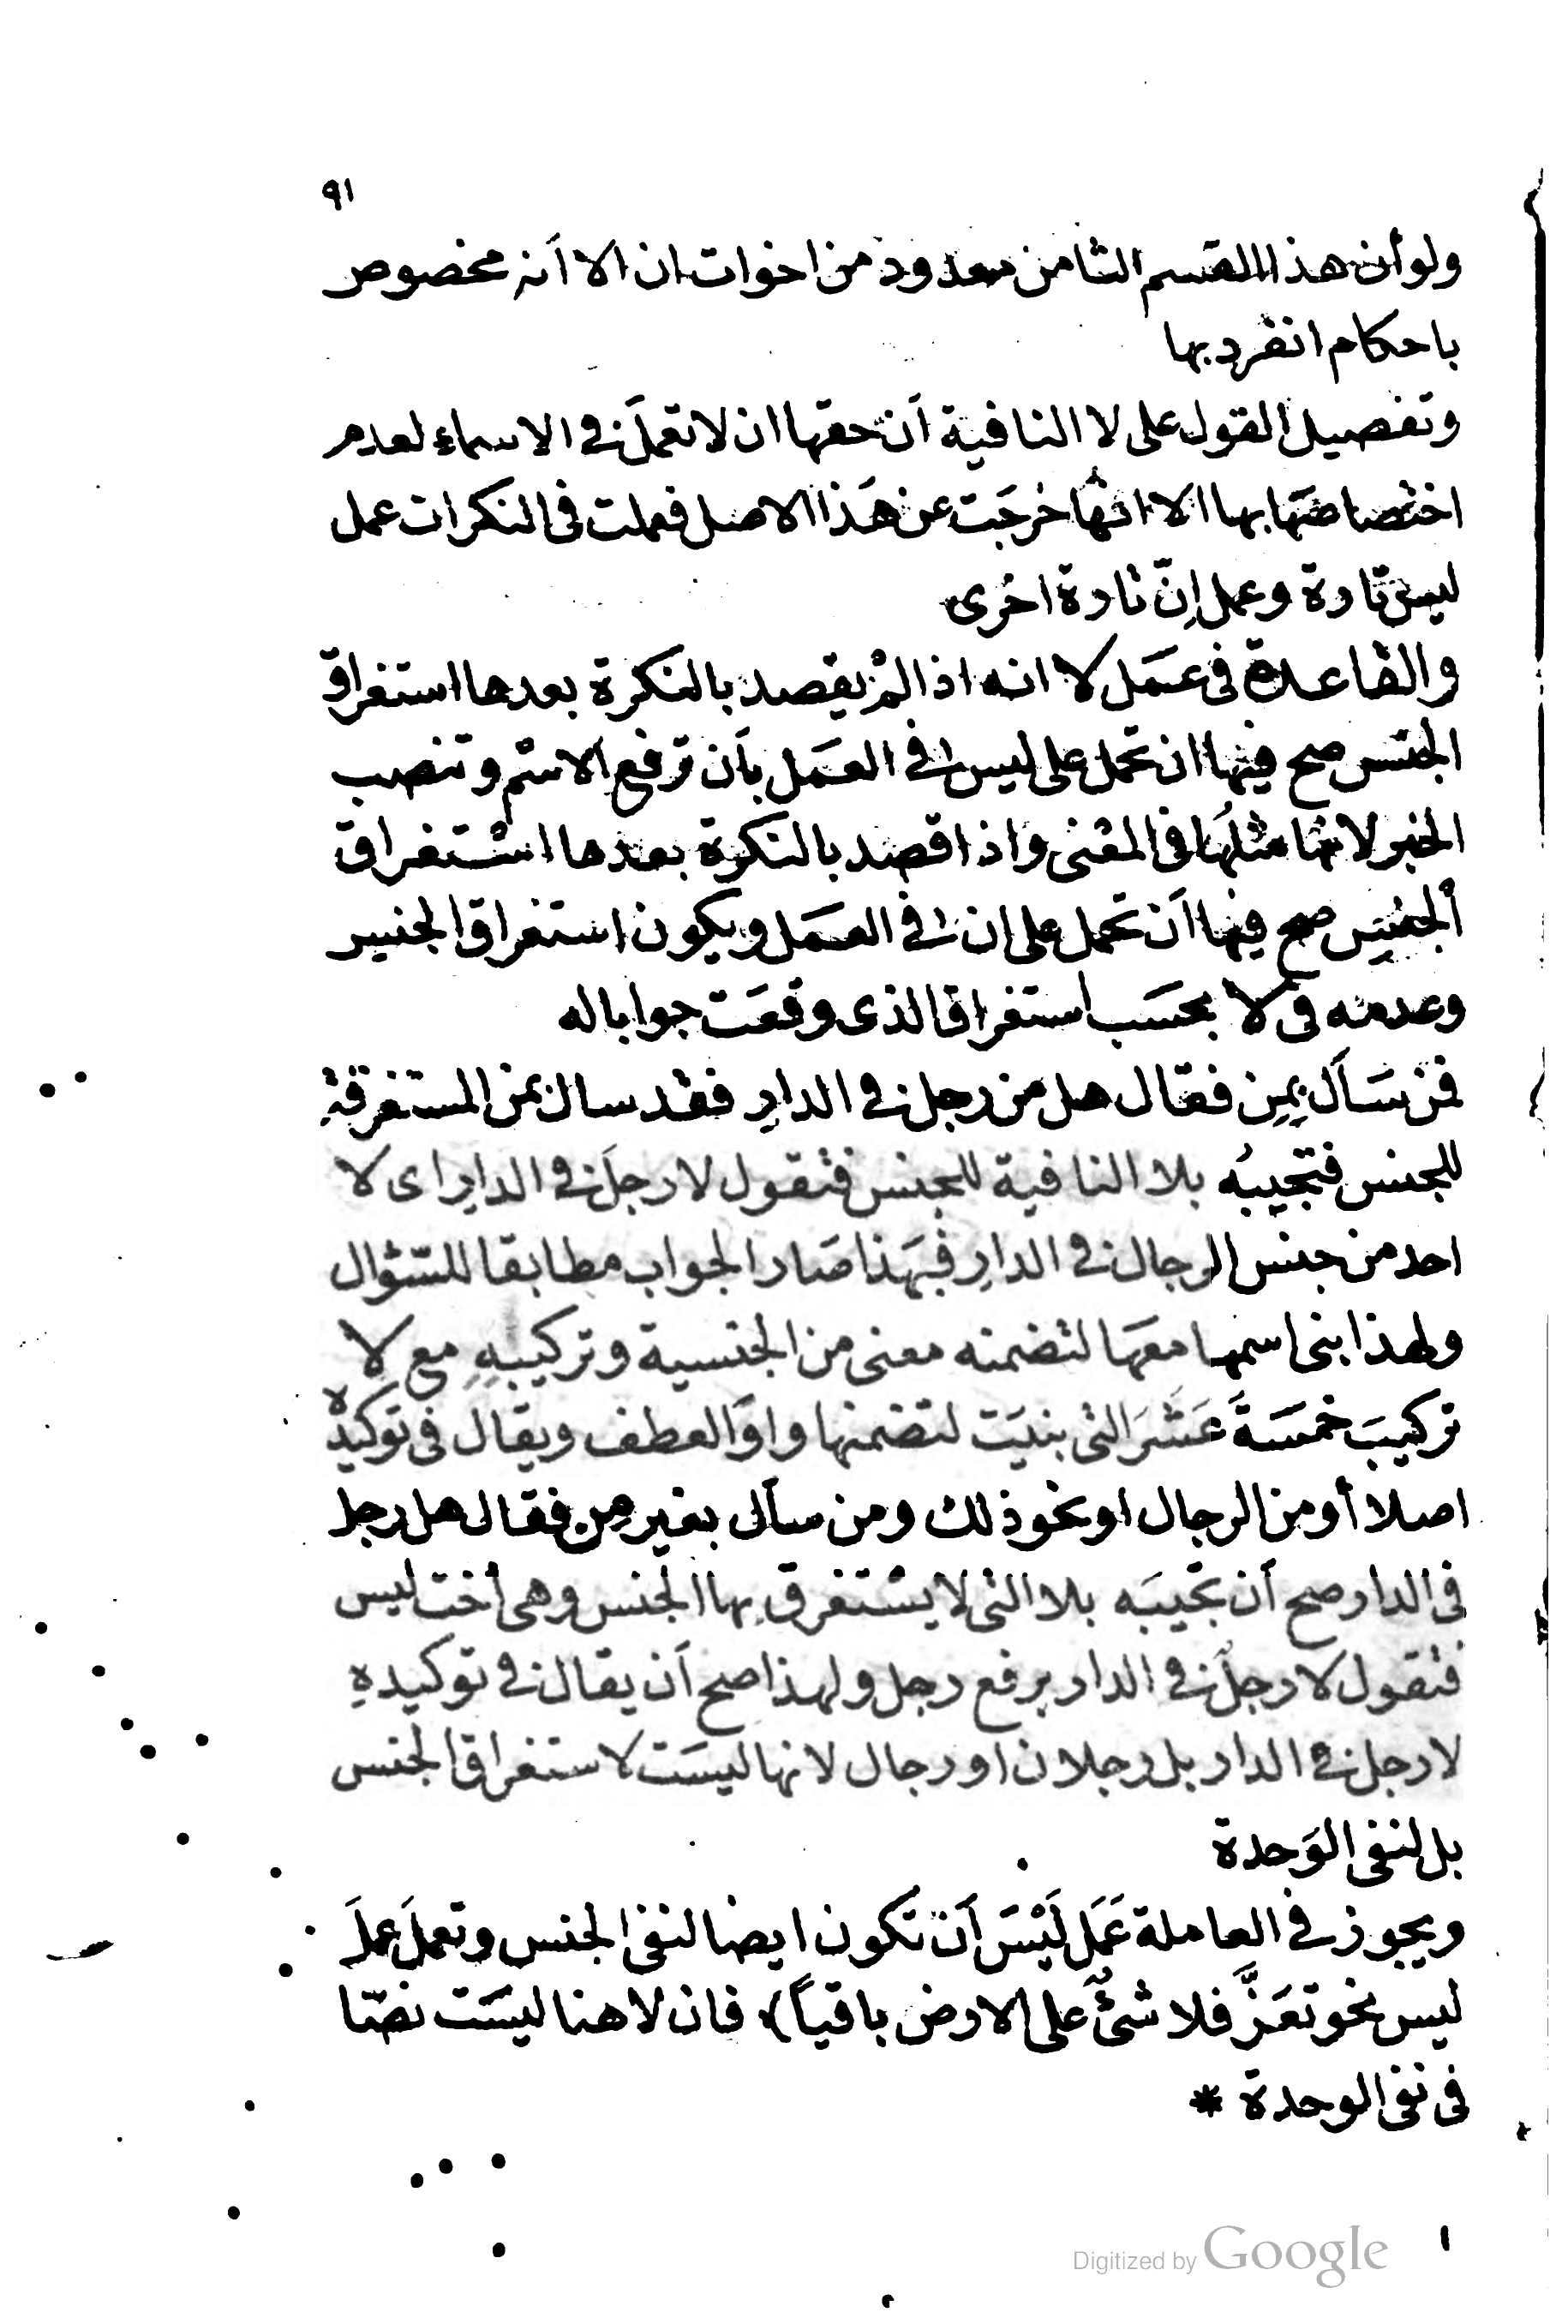 ٩١
ولو أن هذا القسم الثامن معدود من اخوات ان الا اَنه مخصوص
باحكام انفرد بها
وتفصيل القول على لا النافية اَن حقها ان لا تعملَ فى الاسماء لعدم
اختصاصهَا بها الا انهَا خرجَت عن هَذا الاصل فعملت فى النكرات عمل
ليس تارة وعمل اِنّ تارة اخرى
والقاعدة فى عمَل لا انه اذا لمْ يقصد بالنكرة بعدها استغراق
الجنس صح فيها ان تحمل على ليس فى العمَل بأَن ترفع الاسْم وتنصب
الخبر لانها مثلهَا فى المعْنى واذا قصد بالنكرة بعدها استغراق
اَلجنسِ صح فيها اَن تحمل على ان فى العمَل ويكون استغراق الجنس
وعدمه فى لا بحسَب استغراق الذى وقعَت جوابا له
فمن سَأَل بِمِن فقال هل من رجل فى الدارِ فقد سال بمن المستغرقة
للجنس فتجيبُه بلا النافية للجنس فتقول لا رجلَ فى الدارِ اى لا
احد من جنس الرجال فى الدارِ فبهَذا صَار الجواب مطابقا للسّؤال
ولهذا بنى اسمها معهَا لتضمنه معنى من الجنسية وتركيبهِ مع لا
تركيبَ خمسَةَ عَشَرَ التى بنيَت لتضمنها واوَ العطف ويقال فى توكيدهُ
اصلا أو من الرجال او نحو ذلك ومن سأل بغير مِن فقال هل رجل
فى الدار صح أن تجيبَه بلا التى لا يسْتغرق بها الجنس وهى أخت ليس
فتقول لا رجلٌ فى الدار برفع رجل ولهذا صح اَن يقال فى توكيدهِ
لا رجل فى الدار بل رجلان او رجال لانها ليسَت لاستغراق الجنس
بل لنفى الوَحدة
ويجوز فى العاملة عَمَل لَيْسَ اَن تكون ايضا لنفى الجنس وتعملَ عملَ
ليس نحو تعَزَّ فلا شئٌ على الارض باقياً) فان لا هنا ليسَت نصّا
فى نفى الوحدة *
١
Digitized by Google